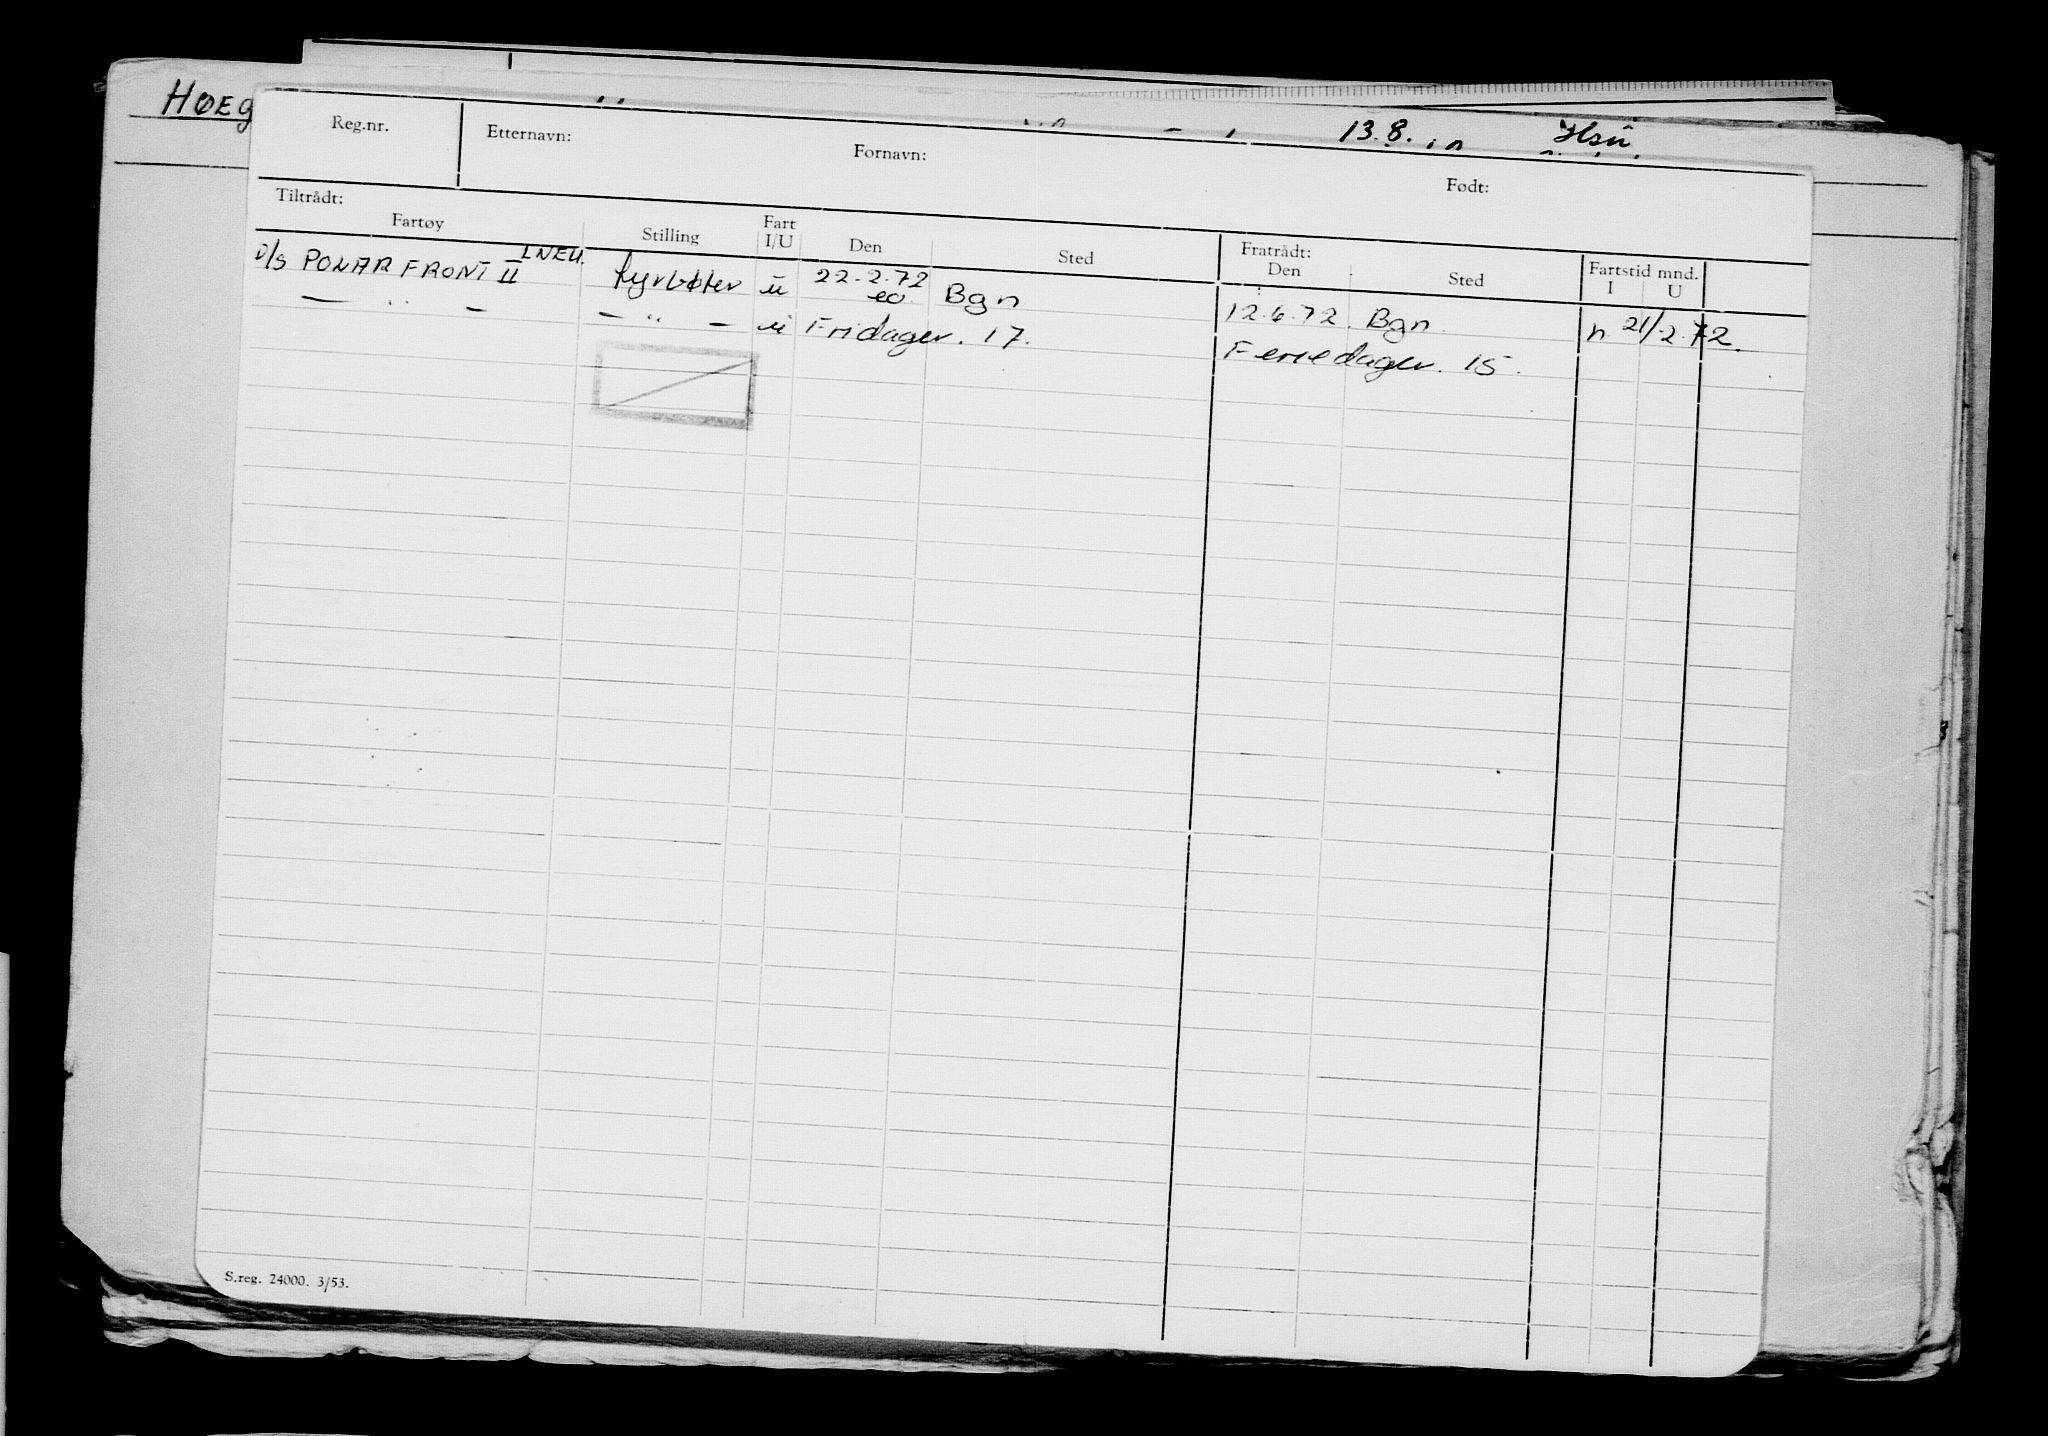 HØEG
13.8.
Reg.nr. Etternavn: Fornavn: Født:
Tiltrådt: Fratrådt:
Fartøy Stilling Fart I/U Den Sted Den Sted Fartstid mnd. I U
D/S POLARFRONT II LNEU. fyrbøter u 22.2.72 Bgn 12.6.72. Bgn. n 21/2.72.
— " — — " — u Fridager. 17. Feriedager. 15.
S.reg. 24000. 3/53.